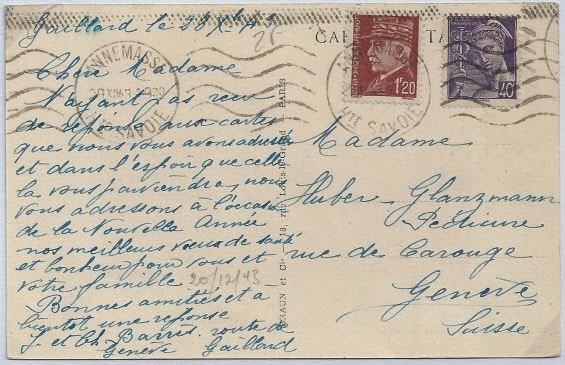 Gaillard le 28 Xbre 43
2F
CA
TA
ANNEMASSE
HTE SAVOIE
1F20
40c
HTE SAVOIE
Chère Madame
N'ayant pas reçu
de réponse aux cartes
que nous vous avons adressé
et dans l'espoir que celle
là vous parviendra, nous
vous adressons à l'occasion
de la Nouvelle Année
nos meilleurs vœux de santé
et bonheur pour vous et
votre famille
20/12/43
Bonnes amitiés et a
bientot une réponse
J. et Ch. Barrès. route de
Genève Gaillard
BRAUN et Cie — 18, rue Louis-le-Grand — PARIS
Madame
Huber - Glanzmann
Pedicure
rue de Carouge
Genève
Suisse